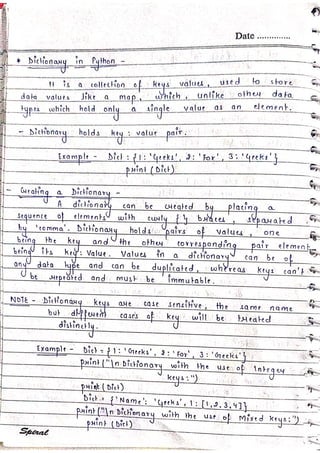 Date ..............
* Dictionary in Python -
It is a collection of keys values, used to store
data values like a map, which, unlike other data
types which hold only a single value as an element.
- Dictionary holds key : value pair.
Example - Dict : { 1 : 'Geeks', 2 : 'For', 3 : 'Geeks' }
print (Dict)
- Creating a Dictionary -
A dictionary can be created by placing a
sequence of elements with curly { } braces, separated
by 'comma'. Dictionary holds pairs of values, one
being the key and the other corresponding pair element
being its key : Value. Values in a dictionary can be of
any data type and can be duplicated, whereas keys can't
be repeated and must be immutable.
NOTE - Dictionary keys are case sensitive, the same name
but different cases of key will be treated
distinctly.
Example - Dict = { 1 : 'Geeks', 2 : 'For', 3 : 'Geeks' }
print ("\n Dictionary with the use of Integer
keys : ")
print (Dict)
Dict = { 'Name' : 'Geeks', 1 : [1, 2, 3, 4] }
print ("\n Dictionary with the use of Mixed keys : ")
print (Dict)
Spiral